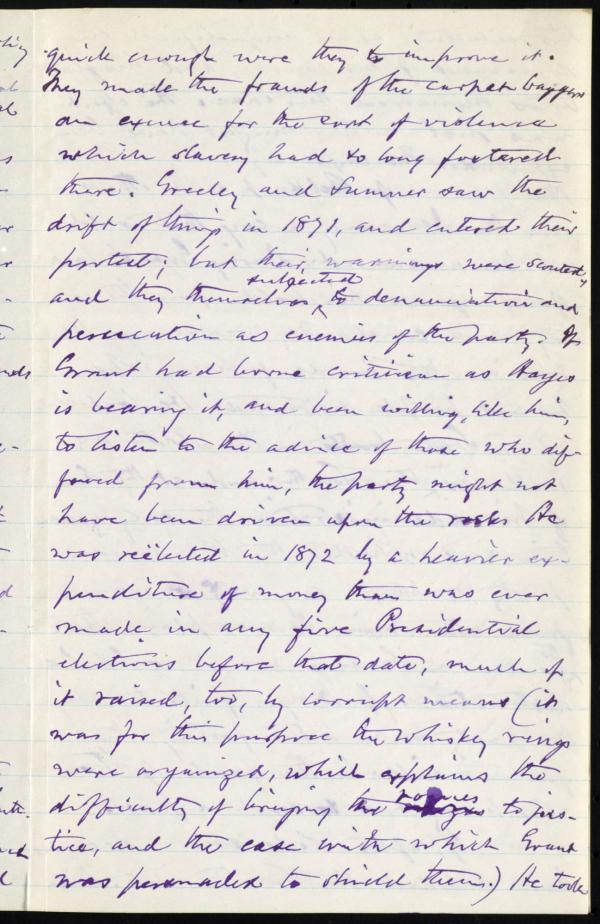 quick enough were they to improve it.
They made the frauds of the carpet baggers
an excuse for the sort of violence
which slavery had so long fostered
there. Greeley and Sumner saw the
drift of things in 1871, and entered their
protest; but their warnings were scouted,
subjected
and they themselves ^ to denunciation and
persecution as enemies of the party. If
Grant had borne criticism as Hayes
is bearing it, and been willing, like him,
to listen to the advice of those who dif-
fered from him, the party might not
have been driven upon the rocks He
was reëlected in 1872 by a heavier ex-
penditure of money than was ever
made in any five Presidential
elections before that date, much of
it raised, too, by corrupt means (it
was for this purpose the whiskey rings
were organized, which explains the
rogues
difficulty of bringing the to jus-
tice, and the ease with which Grant
was persuaded to shield them.) He took